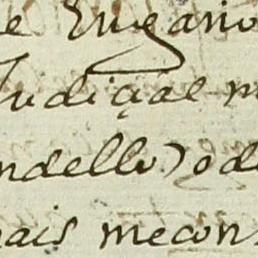 e Engano
Judiçial m
ndello) o de
nais mecon